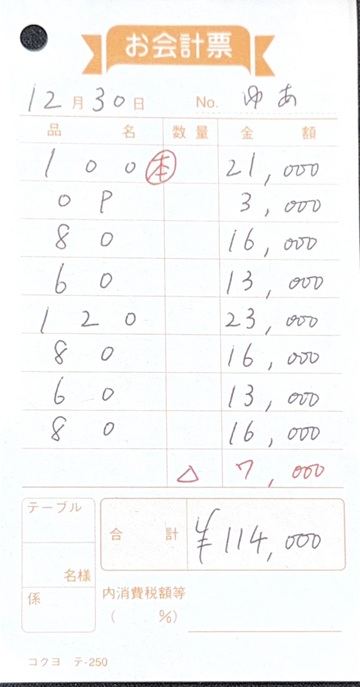 お会計票
12月30日 No. ゆあ
品名 数量 金額
100 本 21,000
OP 3,000
80 16,000
60 13,000
120 23,000
80 16,000
60 13,000
80 16,000
△ 7,000
テーブル
名様
合計 ¥114,000
係
内消費税額等
( %)
コクヨ テ-250